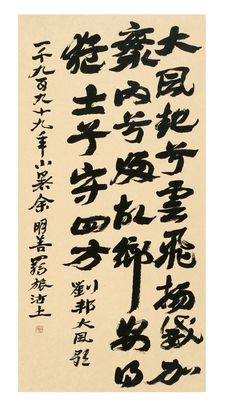 大風起兮雲飛揚威加
海內兮歸故鄉安得
猛士兮守四方 劉邦大風歌
一千九百九十九年小暑余明善羇旅沽上